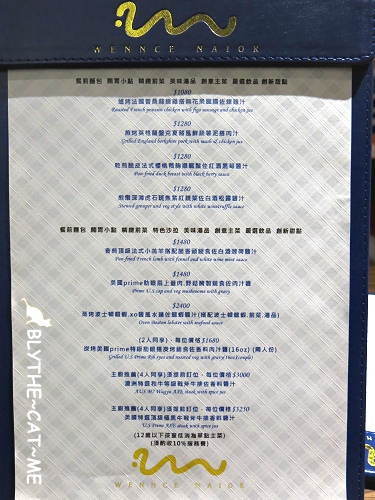 WENNCE NAIOR
餐前麵包 開胃小點 精緻前菜 美味湯品 創意主菜 嚴選飲品 創新甜點
$1080
Roasted French poussin chicken with figs sausage and chicken jus
$1280
Grilled England berkshire pork with mash & chicken jus
$1280
Pan-fried duck breast with black berry sauce
$1280
Stewed grouper and veg style with white wine truffle sauce
餐前麵包 開胃小點 精緻前菜 特色沙拉 美味湯品 創意主菜 嚴選飲品 創新甜點
$1480
Pan-fried French lamb with fennel and white wine mint sauce
$1480
Prime U.S cap and veg mushrooms with gravy
$2400
Oven Boston lobster with seafood sauce
(2人同享)、每位價格$1680
Grilled U.S Prime Rib eyes and roasted veg with gravy (two people)
主廚推薦(4人同享)須提前訂位、每位價格$3000
澳洲特選和牛等級戰斧牛排佐香料醬汁
AUS M7 Wagyu AXE steak with spice jus
主廚推薦(4人同享)須提前訂位、每位價格$3250
美國特選頂級極黑牛戰斧牛排佐香料醬汁
U.S Prime AXE steak with spice jus
(12歲以下孩童低消為單點主菜)
(須酌收10%服務費)
WENNCE NAIOR
BLYTHE~CAT~ME